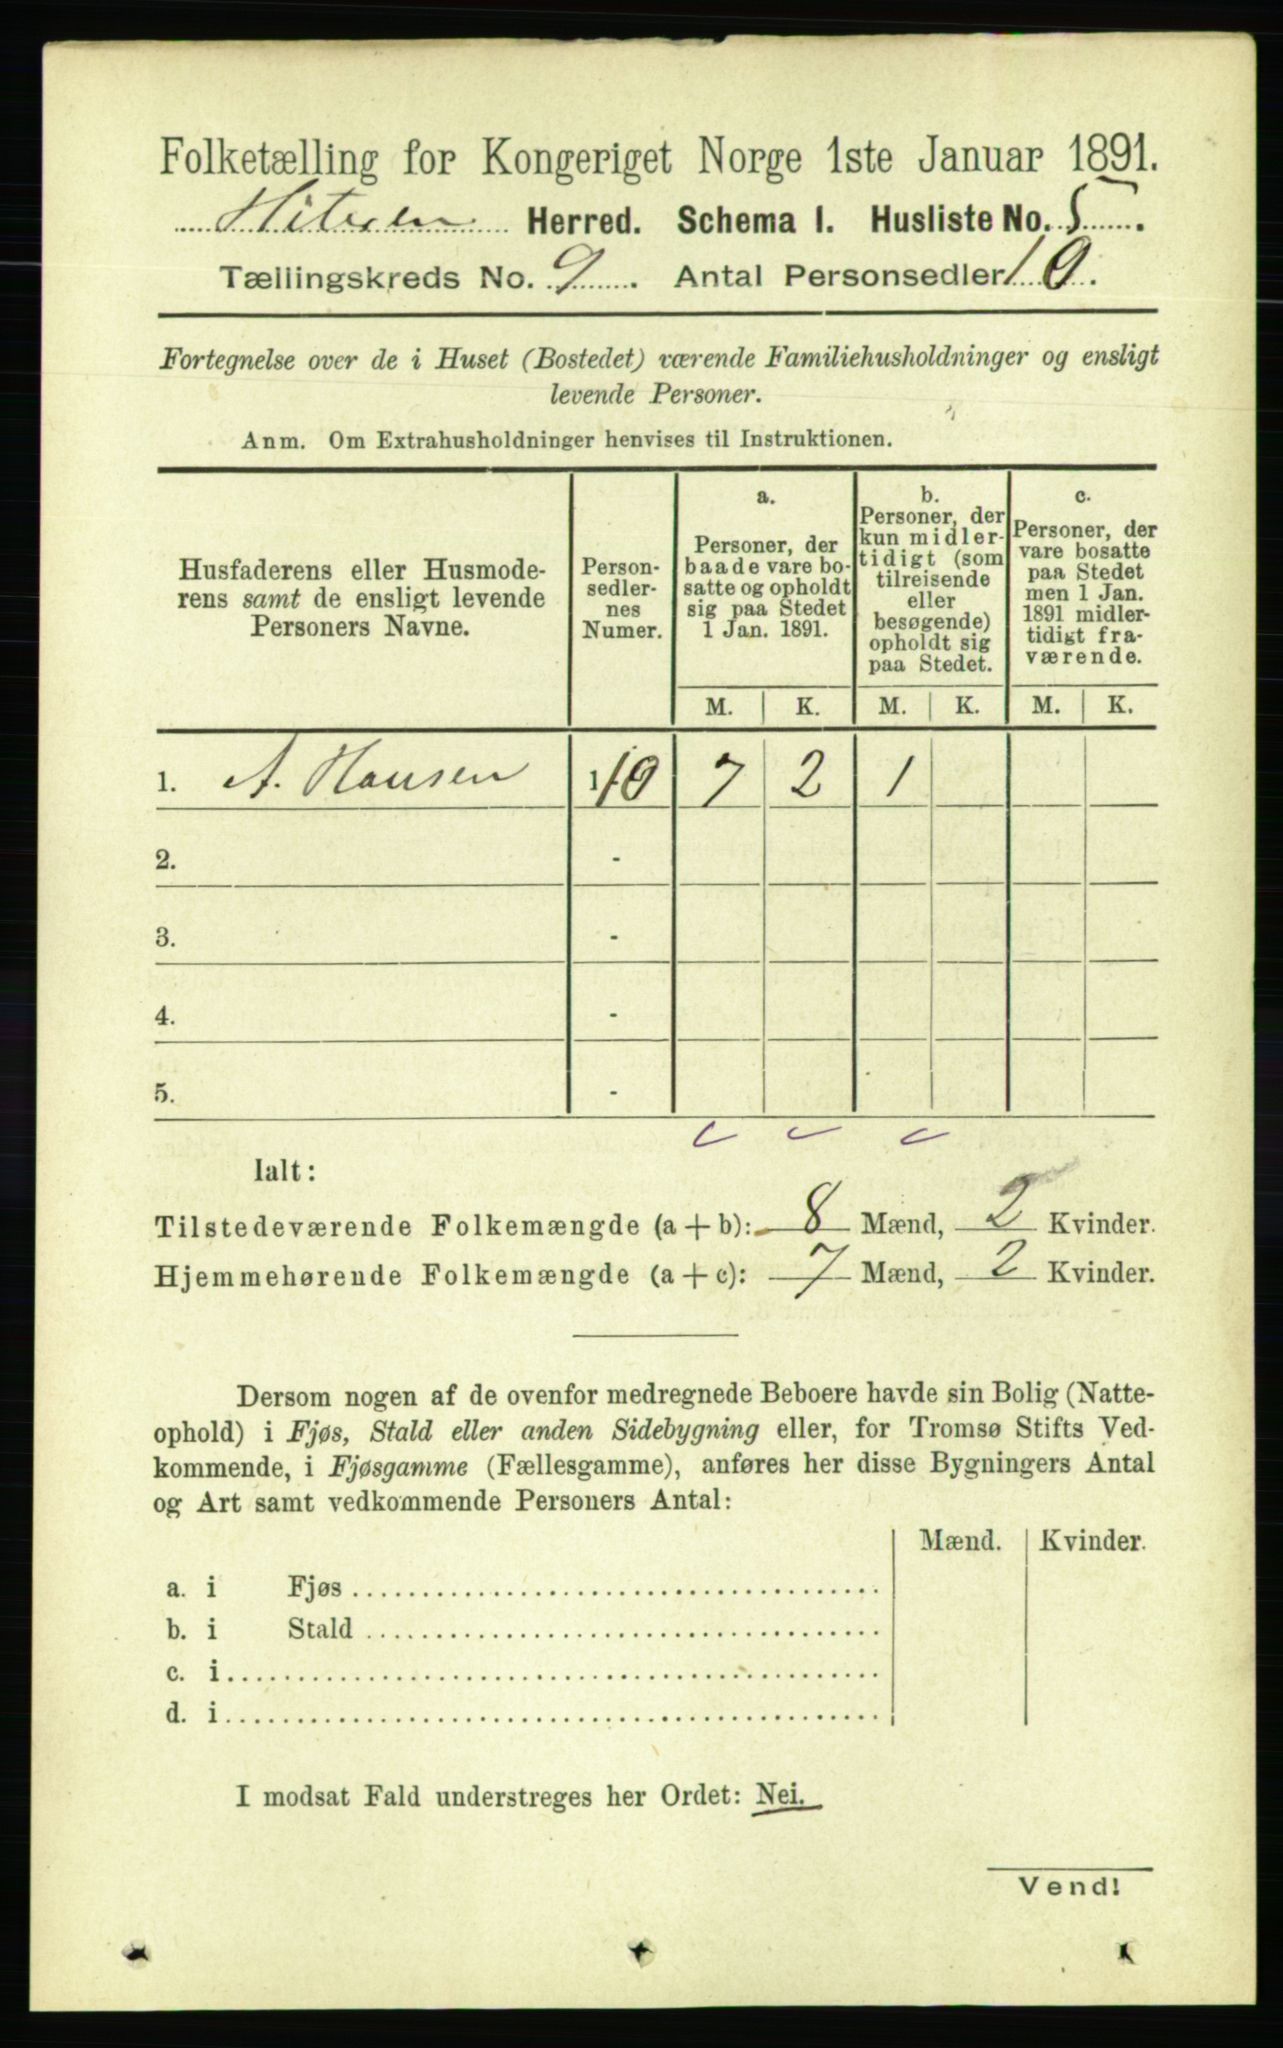 Folketælling for Kongeriget Norge 1ste Januar 1891.
Hiteren Herred. Schema I. Husliste No. 5.
Tællingskreds No. 9. Antal Personsedler 10.
Fortegnelse over de i Huset (Bostedet) værende Familiehusholdninger og ensligt
levende Personer.
Anm. Om Extrahusholdninger henvises til Instruktionen.
Husfaderens eller Husmode-
rens samt de ensligt levende
Personers Navne.
Person-
sedler-
nes
Numer.
a.
Personer, der
baade vare bo-
satte og opholdt
sig paa Stedet
1 Jan. 1891.
b.
Personer, der
kun midler-
tidigt (som
tilreisende
eller
besøgende)
opholdt sig
paa Stedet.
c.
Personer, der
vare bosatte
paa Stedet
men 1 Jan.
1891 midler-
tidigt fra-
værende.
M. K. M. K. M. K.
1. A. Hansen 1-10 7 2 1
2. -
3. -
4. -
5. -
Ialt:
Tilstedeværende Folkemængde (a + b): 8 Mænd, 2 Kvinder.
Hjemmehørende Folkemængde (a + c): 7 Mænd, 2 Kvinder.
Dersom nogen af de ovenfor medregnede Beboere havde sin Bolig (Natte-
ophold) i Fjøs, Stald eller anden Sidebygning eller, for Tromsø Stifts Ved-
kommende, i Fjøsgamme (Fællesgamme), anføres her disse Bygningers Antal
og Art samt vedkommende Personers Antal:
Mænd. Kvinder.
a. i Fjøs
b. i Stald
c. i
d. i
I modsat Fald understreges her Ordet: Nei.
Vend!